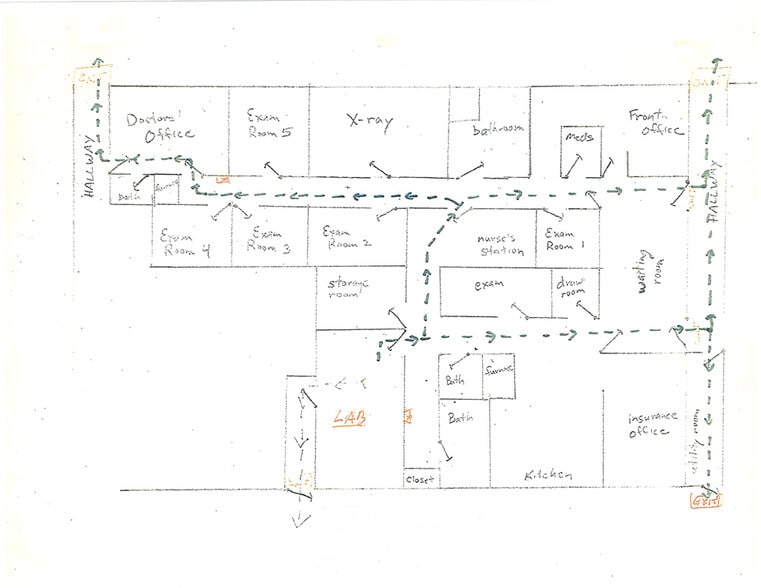 EXIT
EXIT
HALLWAY
Doctors'
Office
Exam
Room 5
X-ray
bathroom
meds
Front
Office
HALLWAY
bath
furnace
Exam
Room 4
Exam
Room 3
Exam
Room 2
nurse's
station
Exam
Room 1
waiting
room
storage
room
exam
draw
room
Bath
furnace
LAB
Bath
insurance
office
utility room
closet
Kitchen
EXIT